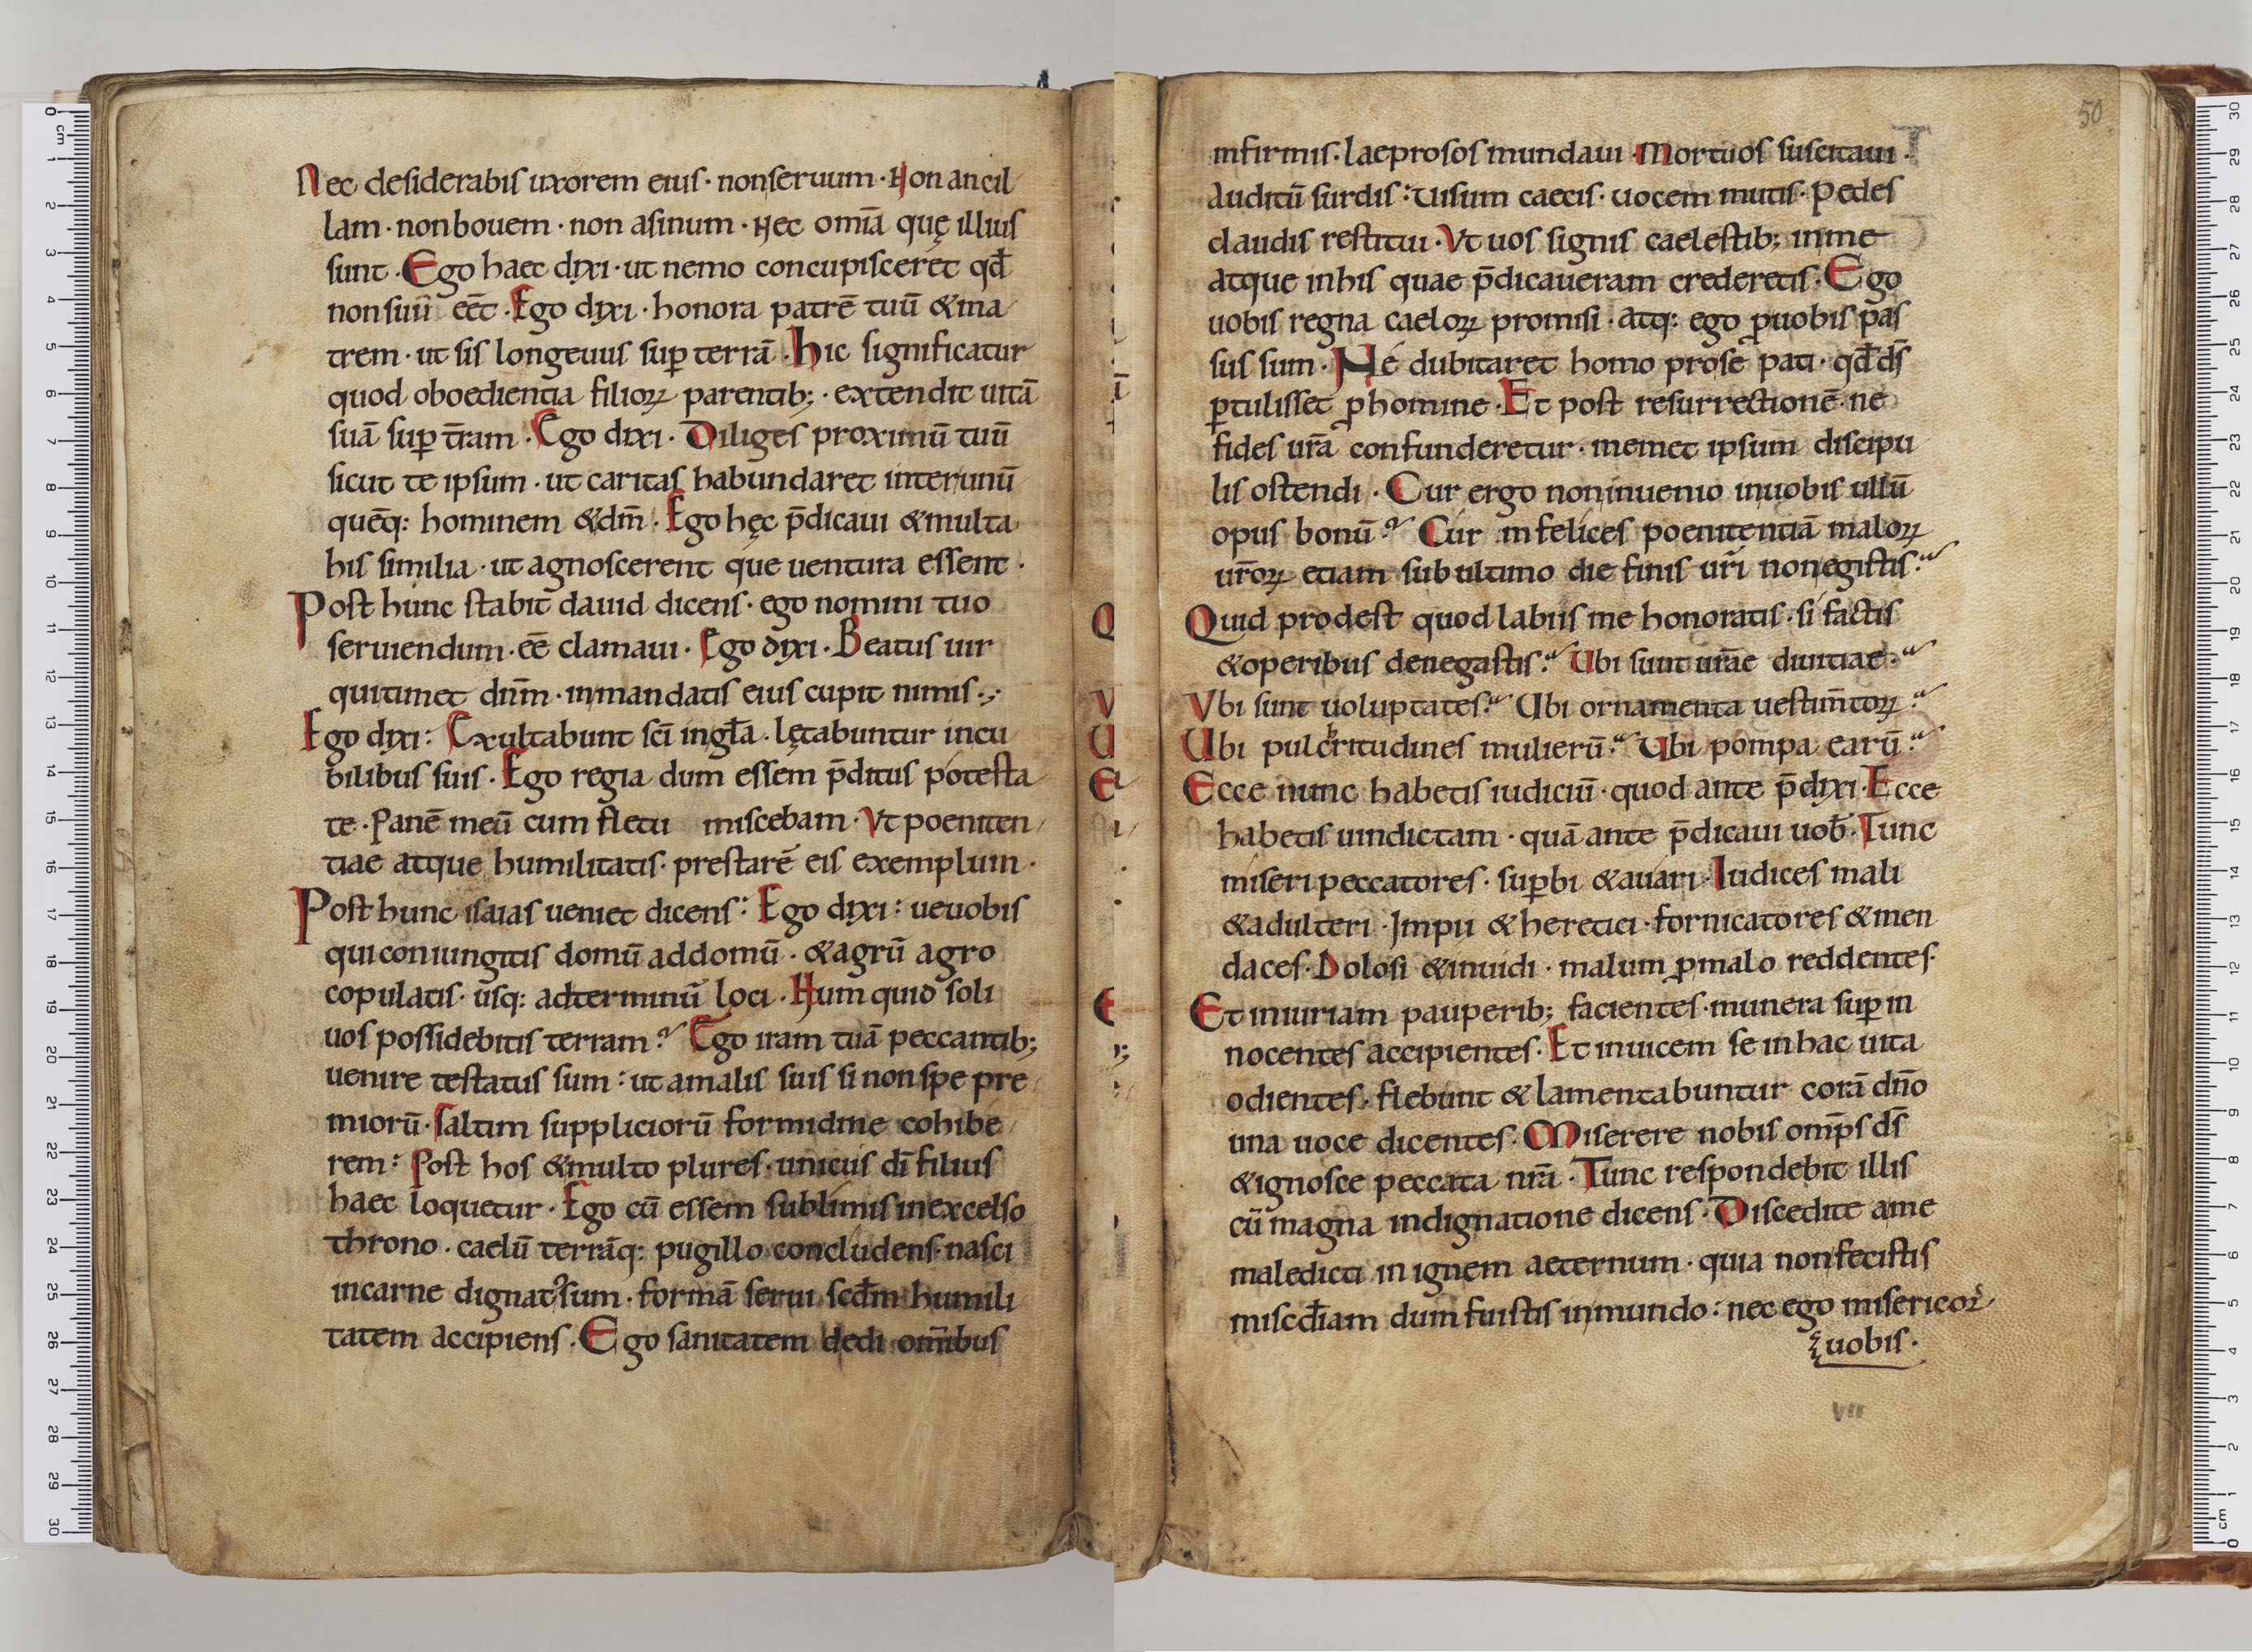 Nec desiderabis uxorem eius · non seruum · Non ancil
lam · non bouem · non asinum · Nec om̄ia quę illius
sunt · Ego haec dixi · ut nemo concupisceret qd̄
non suū eēt · Ego dixi · honora patrē tuū & ma
trem · ut sis longeuus suꝑ terrā · Hic significatur
quod oboedientia filioꝝ parentib; · extendit uitā
suā suꝑ t̄ram · Ego dixi · Diliges proximū tuū
sicut te ipsum · ut caritas habundaret inter unū
quēq: hominem & dm̄ · Ego hęc p̄dicaui & multa
his similia · ut agnoscerent que uentura essent ·
Post hunc stabit dauid dicens · ego nomini tuo
seruiendum · eē clamaui · Ego dixi · Beatus uir
qui timet dnm̄ · in mandatis eius cupit nimis ·
Ego dixi : Exultabunt sc̄i in gl̄a · lętabuntur in cu
bilibus suis · Ego regia dum essem p̄ditus potesta
te · Panē meū cum fletu miscebam · Vt poeniten
tiae atque humilitatis · prestarē eis exemplum ·
Post hunc isaias ueniet dicens : Ego dixi : ue uobis
qui coniungitis domū ad domū · & agrū agro
copulatis · usq: ad terminū loci · Num quid soli
uos possidebitis terram ? Ego iram tuā peccantib;
uenire testatus sum : ut a malis suis si non spe pre
miorū · saltim suppliciorū formidine cohibe
rem : Post hos & multo plures · unicus di̅ filius
haec loquetur · Ego cū essem sublimis in excelso
throno · caelū terrāq: pugillo concludens · nasci
in carne dignatꝰ sum · formā serui scd̄m humili
tatem accipiens · Ego sanitatem dedi om̄ibus
infirmis · laeprosos mundaui · Mortuos suscitaui ·
Auditū surdis : Uisum caecis · uocem mutis · Pedes
claudis restitui · Vt uos signis caelestib; in me
atque in his quae p̄dicaueram crederetis · Ego
uobis regna caeloꝝ promisi · Atq: ego ꝓ uobis pas
sus sum · Ne dubitaret homo pro se pati · qd̄ ds̄
ꝑtulisset ꝓ homine · Et post resurrectionē · ne
fides ur̄a confunderetur · memet ipsum discipu
lis ostendi · Cur ergo non inuenio in uobis ullū
opus bonū ? Cur infelices poenitentiā maloꝝ
ur̄oꝝ etiam sub ultimo die finis ur̄i non egistis ?
Quid prodest quod labiis me honoratis · si factis
& operibus denegastis ? Ubi sunt ur̄ae diuitiae ?
Vbi sunt uoluptates ? Ubi ornamenta uestim̄toꝝ ?
Ubi pulcʰritudines mulierū ? Ubi pompa earū ?
Ecce nunc habetis iudiciū · quod ante p̄dixi · Ecce
habetis uindictam · quā ante p̄dicaui uob̄ · Tunc
miseri peccatores · suꝑbi & auari · Iudices mali
& adulteri · Impii & heretici · fornicatores & men
daces · Dolosi & inuidi · malum ꝓ malo reddentes ·
Et iniuriam pauperib; facientes · munera suꝑ in
nocentes accipientes · Et inuicem se in hac uita
odientes · flebunt & lamentabuntur corā dn̄o
una uoce dicentes · Miserere nobis omp̄s ds̄
& ignosce peccata nr̄a · Tunc respondebit illis
cū magna indignatione dicens · Discedite a me
maledicti in ignem aeternum · quia non fecistis
miscd̄iam dum fuistis in mundo : nec ego misericor
uobis ·
VII
50